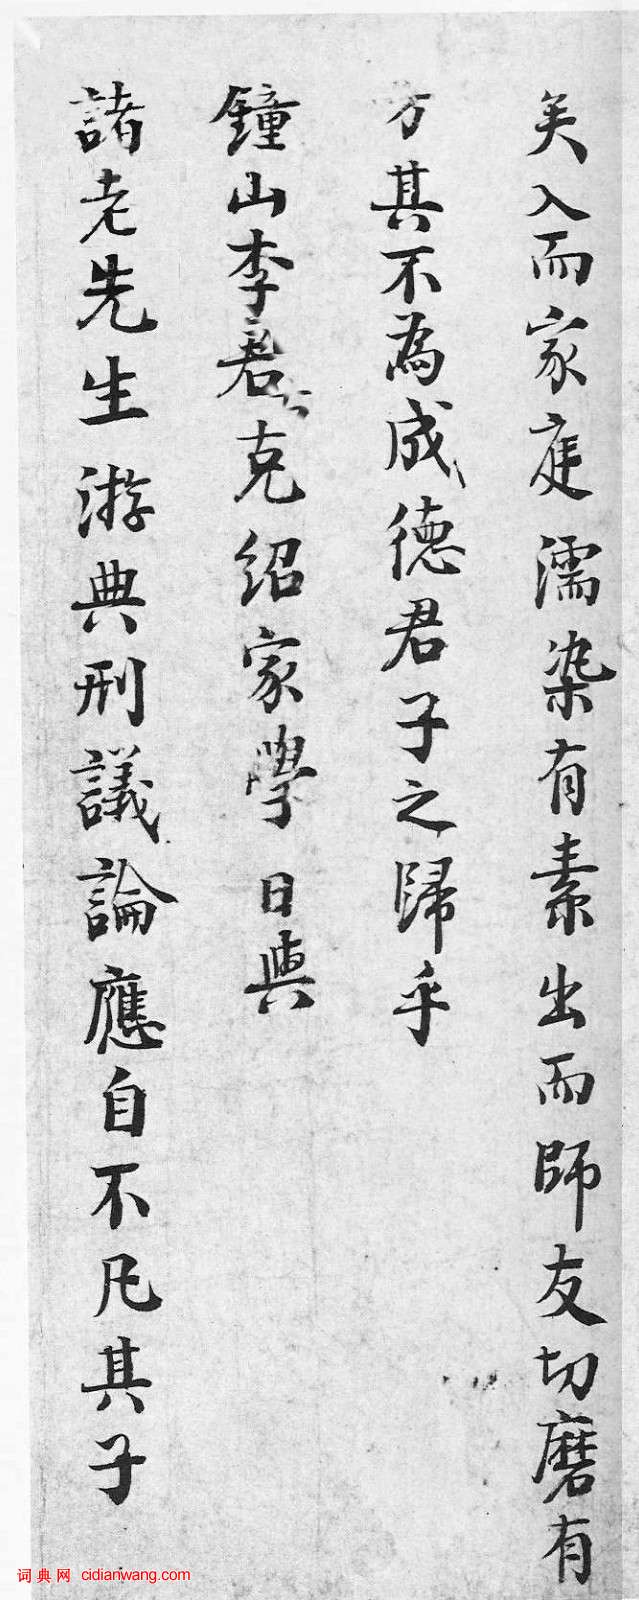 矣入而家庭濡染有素出而師友切磨有
方其不為成德君子之歸乎
鐘山李君克紹家學日與
諸老先生游典刑議論應自不凡其子
词典网 cidianwang.com